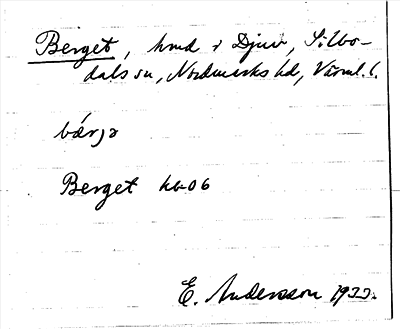 Berget, hmd i Djuv, Silbo-
dals sn, Nordmarks hd, Värml. l.
bærjə
Berget kb 06
E. Andersson 1922.